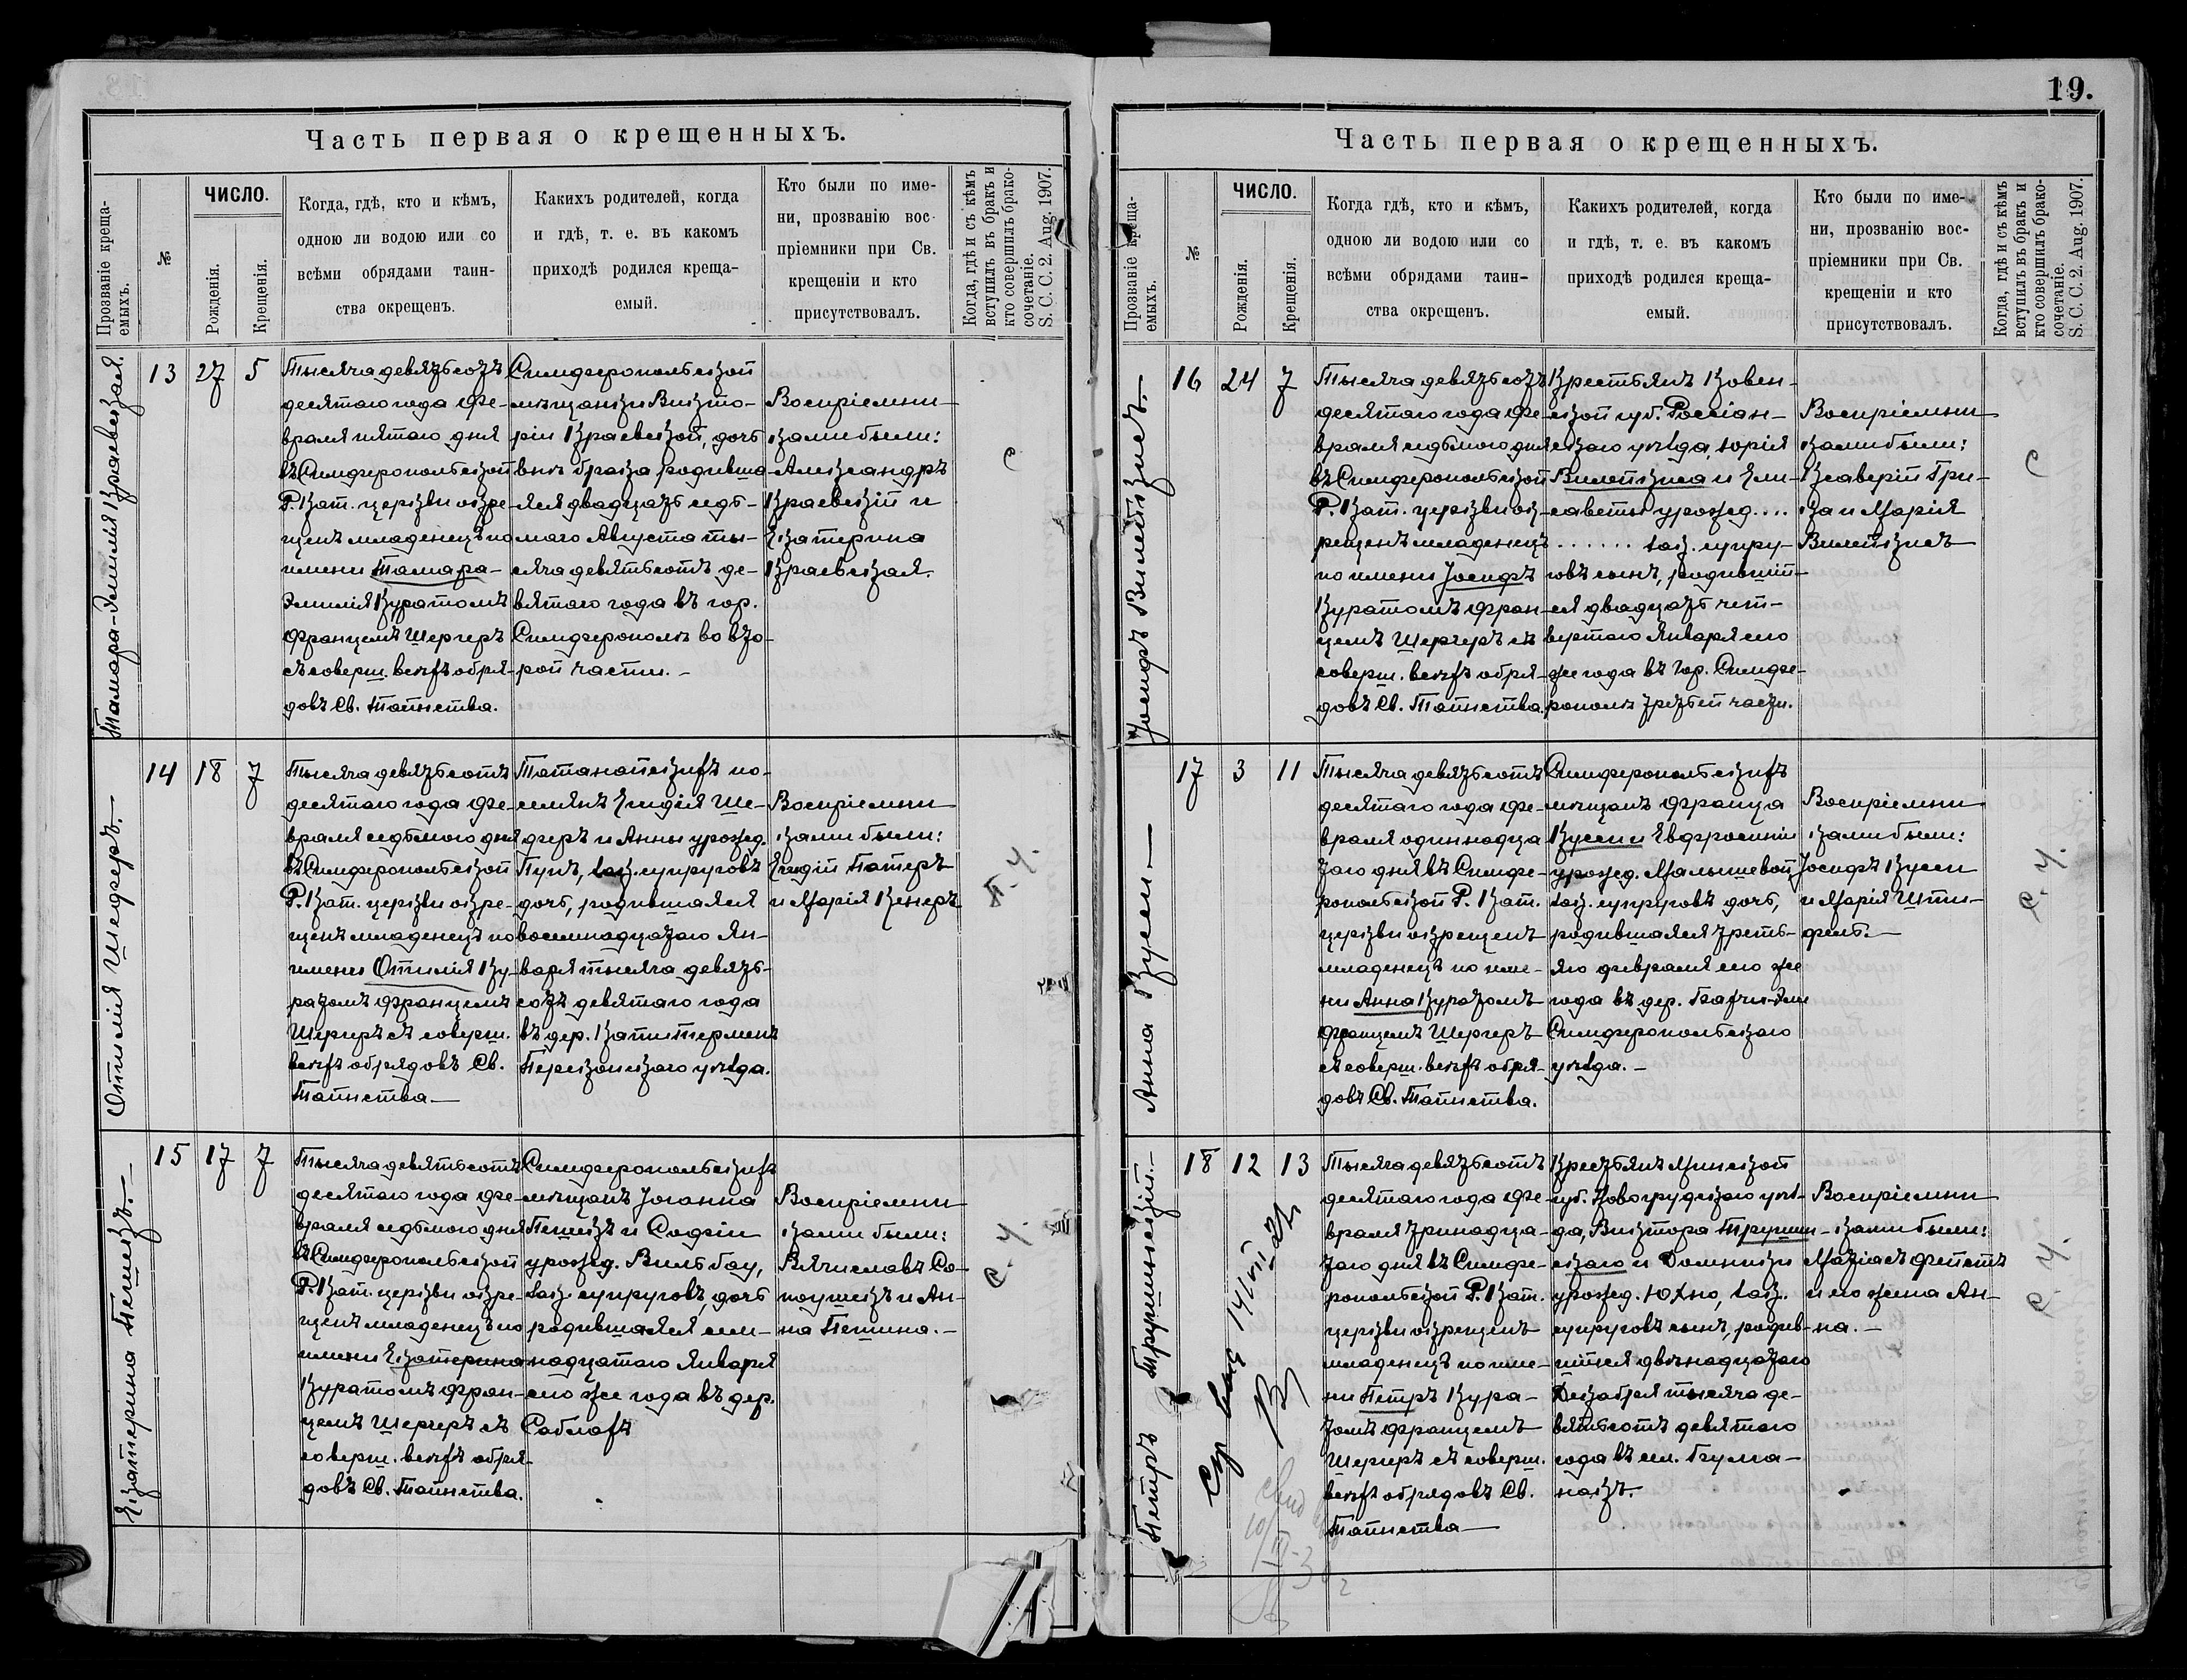 19.
Часть первая о крещенныхъ.
Прозваніе креща-
емыхъ.
№
ЧИСЛО.
Рожденія.
Крещенія.
Когда, гдѣ, кто и кѣмъ,
одною ли водою или со
всѣми обрядами таин-
ства окрещенъ.
Какихъ родителей, когда
и гдѣ, т. е. въ какомъ
приходѣ родился креща-
емый.
Кто были по име-
ни, прозванію вос-
пріемники при Св.
крещеніи и кто
присутствовалъ.
Когда, гдѣ и съ кѣмъ
вступилъ въ бракъ и
кто совершилъ брако-
сочетаніе.
S. C. C. 2. Aug. 1907.
Тамара-Эмилія Краевская.
13
27
5
Тысяча девятьсотъ
десятаго года Фе-
враля пятаго дня
въ Симферопольской
Р. Кат. церкви окре-
щенъ младенецъ по
имени Тамара-
Эмилія Куратомъ
Францемъ Шергеръ
съ соверш. всѣхъ обря-
довъ Св. Таинства.
Симферопольской
мѣщанки Викто-
ріи Краевской, дочь
внѣ брака родивша-
яся двадцать седь-
маго Августа ты-
сяча девятьсотъ де-
вятаго года въ гор.
Симферополѣ во вто-
рой части.-
Воспріемни-
ками были:
Александръ
Краевскій и
Екатерина
Краевская.
с
Отилія Шеферъ.-
14
18
7
Тысяча девятьсотъ
десятаго года Фе-
враля седьмого дня
въ Симферопольской
Р. Кат. церкви окре-
щенъ младенецъ по
имени Отилія Ку-
ратомъ Францемъ
Шергеръ съ соверш.
всѣхъ обрядовъ Св.
Таинства-
селянъ Егидія Ше-
феръ и Анны урожд.
зак. супруговъ
дочь, родившаяся
восемнадцатаго Ян-
варя тысяча девять-
сотъ девятаго года
Перекопскаго уѣзда.
Воспріемни
ками были:
Егидій
и Марія
Екатерина
15
17
7
Тысяча девятьсотъ
десятаго года Фе-
враля седьмого дня
въ Симферопольской
Р. Кат. церкви окре-
щенъ младенецъ по
имени Екатерина
Куратомъ Фран-
цемъ Шергеръ съ
соверш. всѣхъ обря-
довъ Св. Таинства.
Симферопольскихъ
мѣщанъ Іоганна
и Софіи
урожд.
зак. супруговъ, дочь
родившаяся сем-
надцатаго Января
сего же года въ дер.
Саблахъ
Воспріемни
ками были:
Вячеславъ
и Ан-
на
с. ч.
Часть первая о крещенныхъ.
Прозваніе креща-
емыхъ.
№
ЧИСЛО.
Рожденія.
Крещенія.
Когда гдѣ, кто и кѣмъ,
одною ли водою или со
всѣми обрядами таин-
ства окрещенъ.
Какихъ родителей, когда
и гдѣ, т. е. въ какомъ
приходѣ родился креща-
емый.
Кто были по име-
ни, прозванію вос-
пріемники при Св.
крещеніи и кто
присутствовалъ.
Когда, гдѣ и съ кѣмъ
вступилъ въ бракъ и
кто совершилъ брако-
сочетаніе.
S. C. C. 2. Aug. 1907.
Іосифъ Вилейкисъ.-
16
24
7
Тысяча девятьсотъ
десятаго года Фе-
враля седьмого дня
въ Симферопольской
Р. Кат. церкви ок-
рещенъ младенецъ
по имени Іосифъ
Куратомъ Фран-
цемъ Шергеръ съ
соверш. всѣхъ обря-
довъ Св. Таинства.
Крестьянъ Ковен-
ской губ. Россіен-
скаго уѣзда, Юрія
Вилейкиса и Ели-
саветы урожд....
...... зак. супру-
говъ сынъ, родившій-
ся двадцать чет-
вертаго Января сего
же года въ гор. Симфе-
рополѣ третьей части.
Воспріемни
ками были:
Ксаверій Гри-
ка и Марія
Вилейкисъ
с
Анна Кусси-
17
3
11
Тысяча девятьсотъ
десятаго года Фе-
враля одиннадца
таго дня въ Симфе-
ропольской Р. Кат.
церкви окрещенъ
младенецъ по име-
ни Анна Куратомъ
Францемъ Шергеръ
съ соверш. всѣхъ обря-
довъ Св. Таинства.
Симферопольскихъ
мѣщанъ Франца
Кусси и Евфросиніи
урожд. Малышевой
зак. супруговъ дочь,
родившаяся треть-
яго февраля сего же
года въ дер.
Симферопольскаго
уѣзда.-
Воспріемни
ками были:
Іосифъ Кусси
и Марія
с. ч.
Петръ Трушинскій.-
18
12
13
Тысяча девятьсотъ
десятаго года Фе-
враля тринадца-
таго дня въ Симфе-
ропольской Р. Кат.
церкви окрещенъ
младенецъ по име-
ни Петръ Кура-
томъ Францемъ
Шергеръ съ соверш.
всѣхъ обрядовъ Св.
Таинства-
Крестьянъ Минской
губ. Новогрудскаго уѣз-
да, Виктора Трушин-
скаго и Доминики
урожд. зак.
супруговъ сынъ, родив-
шійся двѣнадцатаго
Декабря тысяча де-
вятьсотъ девятаго
года въ
Воспріемни
ками были:
и его жена Ан-
на.-
с. ч.